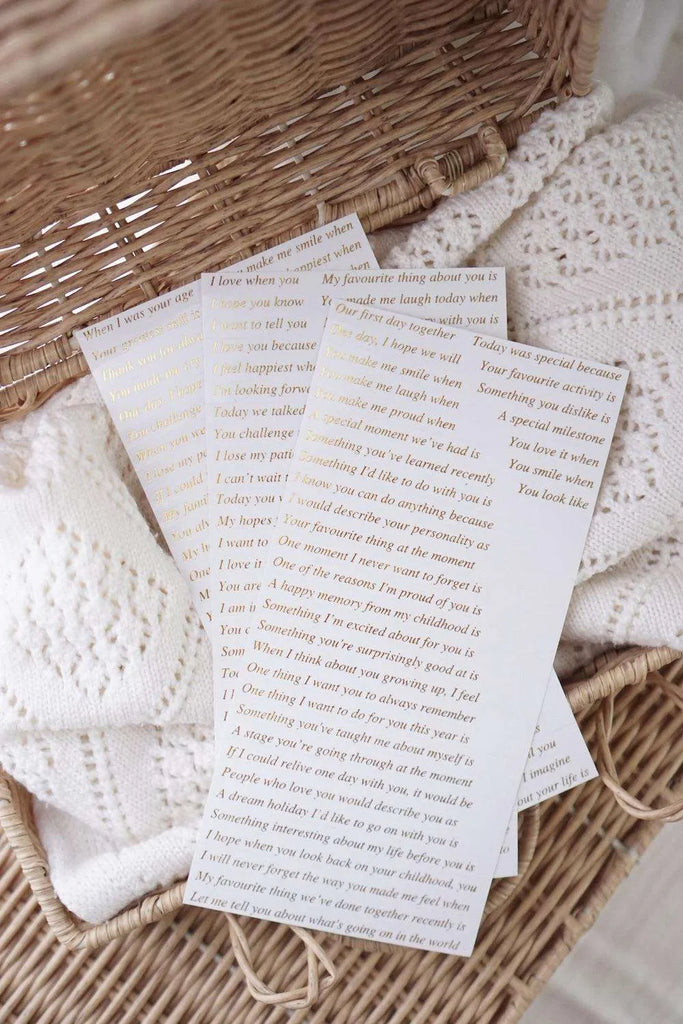 make me smile when
happiest when
When I was your age
Your greatest
Thank you for
You made me
One day, I hope
Your challenge
When you we
I lose my pa
If I could
My family
You al
My h
One
I love when you
I hope you know
I want to tell you
I love you because
I feel happiest when
I'm looking forw
Today we talked
You challenge
I lose my patie
I can't wait t
Today you
My hopes
I want to
I love it
You are
I am i
You c
Som
Too
I
I
My favourite thing about you is
You made me laugh today when
with you is
Our first day together
One day, I hope we will
You make me smile when
You make me laugh when
You make me proud when
A special moment we've had is
Something you've learned recently
Something I'd like to do with you is
I know you can do anything because
I would describe your personality as
Your favourite thing at the moment
One moment I never want to forget is
One of the reasons I'm proud of you is
A happy memory from my childhood is
Something I'm excited about for you is
Something you're surprisingly good at is
When I think about you growing up, I feel
One thing I want you to always remember
One thing I want to do for you this year is
Something you've taught me about myself is
A stage you're going through at the moment
If I could relive one day with you, it would be
People who love you would describe you as
A dream holiday I'd like to go on with you is
Something interesting about my life before you is
I hope when you look back on your childhood, you
I will never forget the way you made me feel when
My favourite thing we've done together recently is
Let me tell you about what's going on in the world
Today was special because
Your favourite activity is
Something you dislike is
A special milestone
You love it when
You smile when
You look like
you
I imagine
out your life is
to